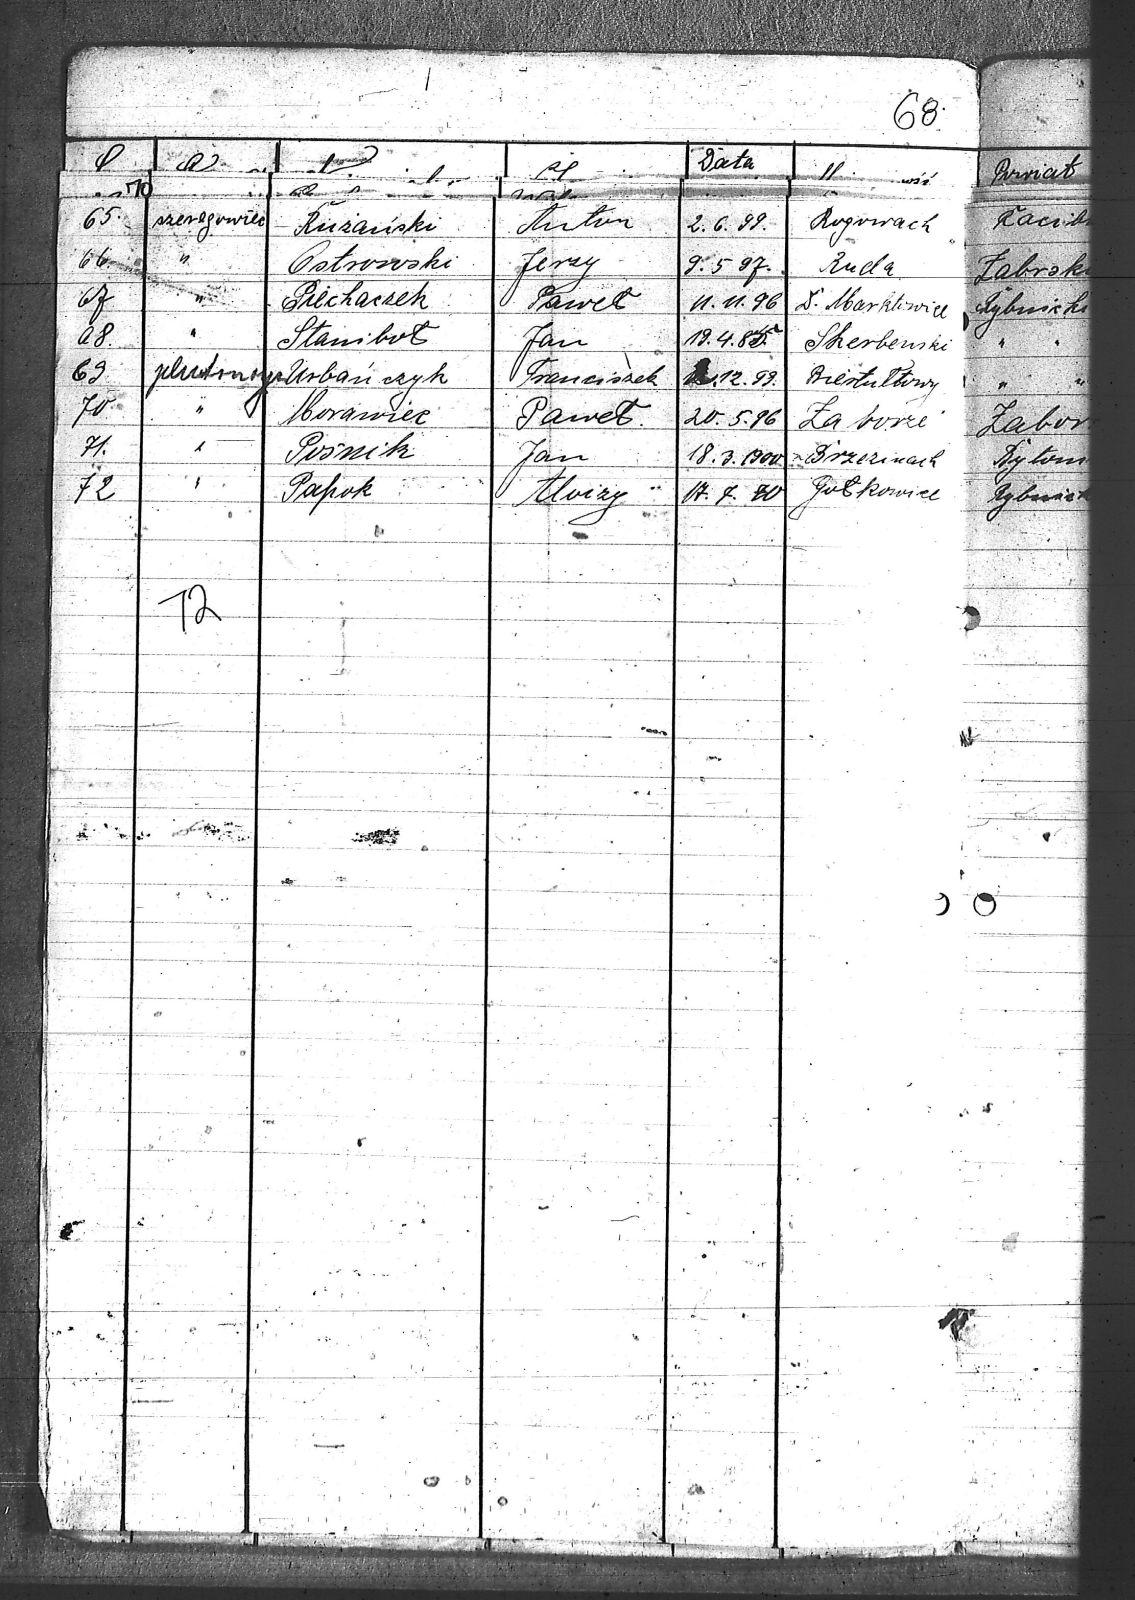 68
Data Powiat
70
65. szeregowiec Rużański Anton 2. 6. 99. Rogowach Racib
66. " Ostrowski Jerzy 9. 5 97. Ruda Zabrski
67 " Piechaczek Paweł 11. 11. 96 D. Marklowice Rybnicki
68. " Stanibot Jan 19. 4. 85. Skerbenski " "
69 Urbańczyk Franciszek 12. 99. Biertułtowy " "
70 " Morawiec Paweł. 20. 5. 96 Zaborze Zabor
71. " Pośnik Jan 18. 3. 1900 Brzezinach Bytom
72 " Papok Aloizy 17. 7. Gołkowice Rybnick
72